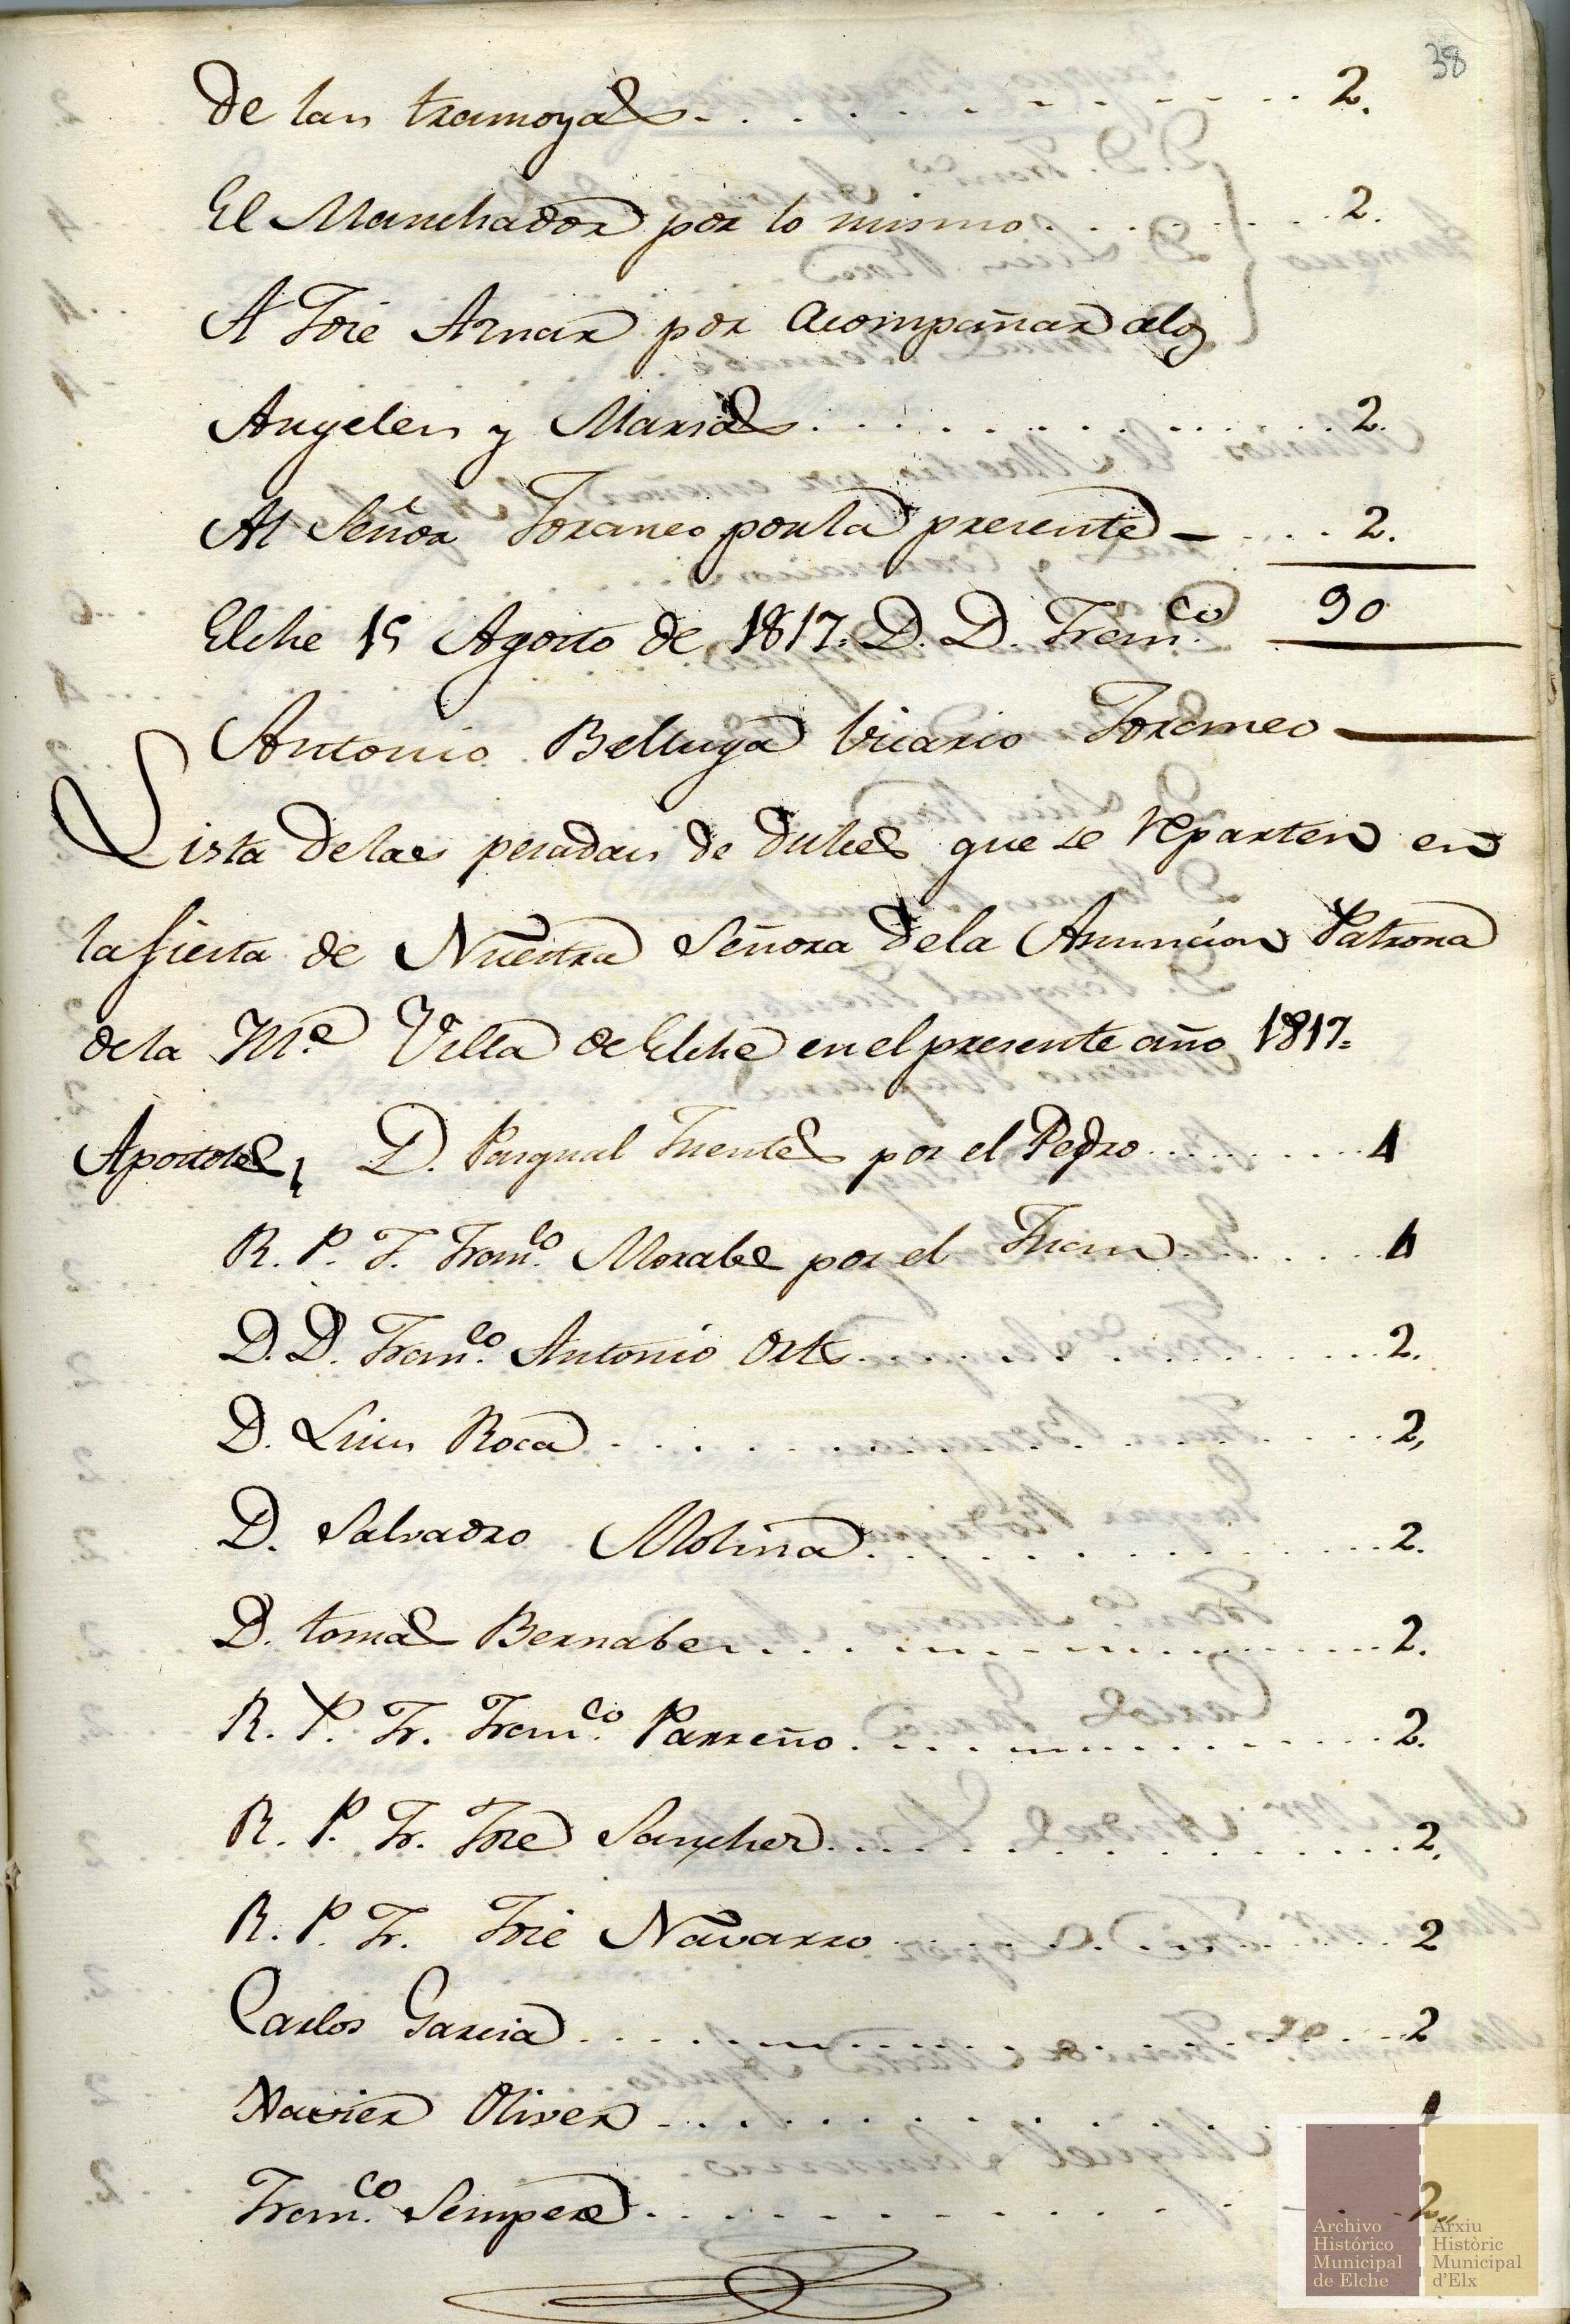 38
de las tramoyas . . . . . . . . . . 2.
El Manchador por lo mismo . . . . . . 2.
A José Aznar por acompañar alos
Angeles y Marias . . . . . . . . . . 2.
Al Señor Foraneo por la presente — . . . 2.
Elche 15 Agosto de 1817. D. D. Franco. 90
Antonio Belluga Vicario Foraneo
Lista delas pesadas de dulces que se reparten en
la fiesta de Nuestra Señora dela Asuncion Patrona
dela Me. Villa de Elche en el presente año 1817=
Apostoles, D. Pasqual Fuentes por el Pedro . . . . . . 4
R. P. F. Franco. Morales por el Juan . . . . . . 4
D. D. Franco. Antonio Orts . . . . . . . . . . 2.
D. Luis Roca . . . . . . . . . . . . . 2,
D. Salvador Molina . . . . . . . . . . . 2.
D. tomas Bernabeu . . . . . . . . . . . 2.
R. P. Fr. Franco. Parreño . . . . . . . . . . 2.
R. P. Fr. José Sanchez . . . . . . . . . . . 2.
R. P. Fr. José Navarro . . . . . . . . . . 2
Carlos Garcia . . . . . . . . . . . . 2
Xavier Oliver . . . . . . . . . . . .
Franco. Sempere . . . . . . . . . . . . 2
Archivo
Histórico
Municipal
de Elche
Arxiu
Històric
Municipal
d'Elx